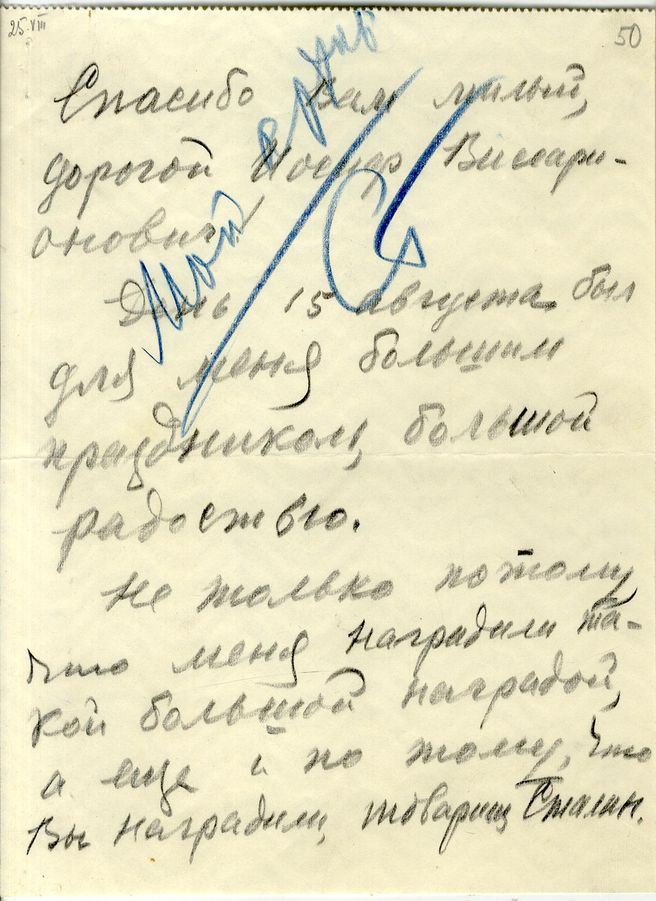 25.VIII
50
Мой архив
Спасибо Вам милый,
дорогой Иосиф Виссари-
онович!
День 15 августа был
для меня большим
праздником, большой
радостью.
Не только потому
что меня наградили та-
кой большой наградой,
а еще и по тому, что
Вы наградили, товарищ Сталин.